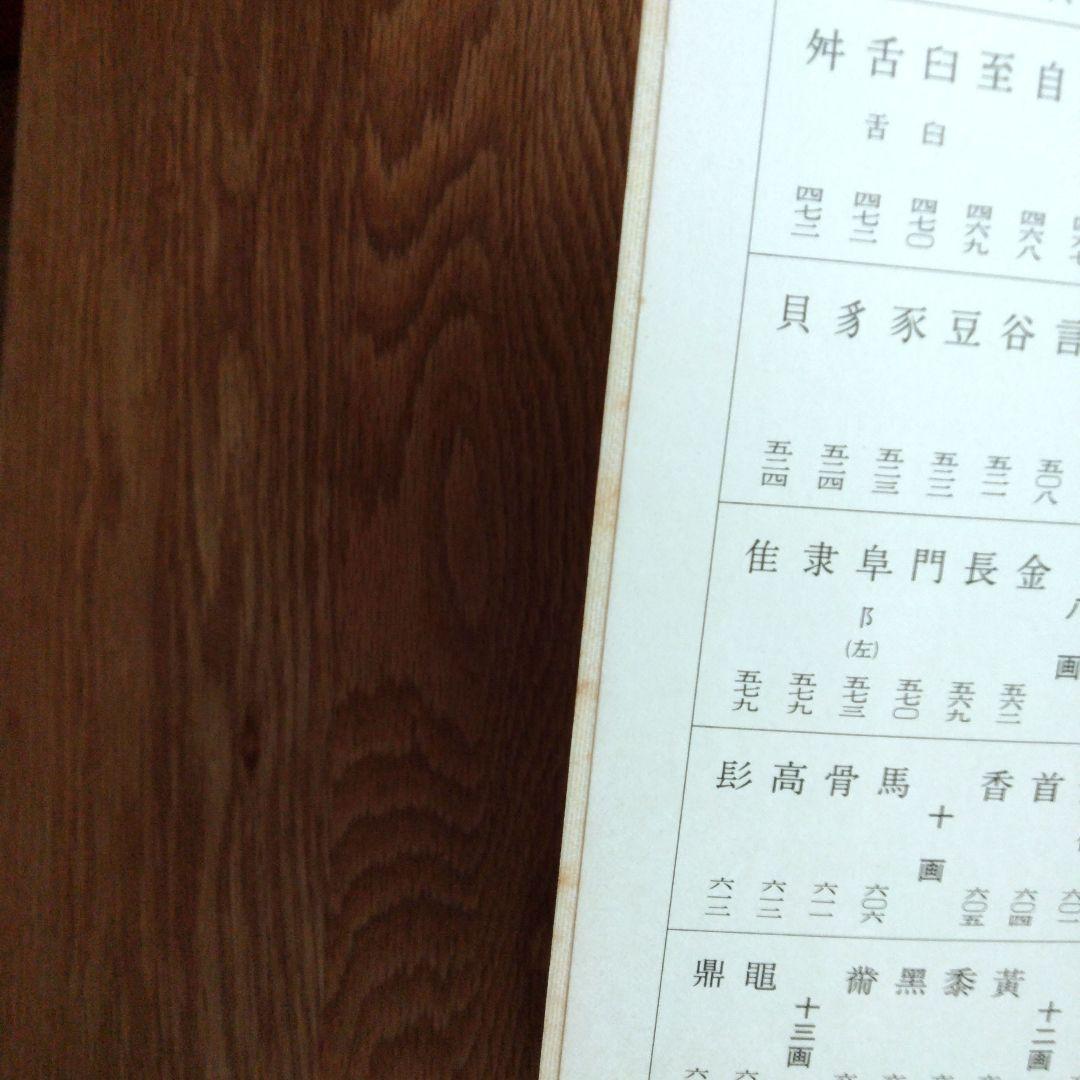 自 四六八
至 四六九
臼 𦥑 四七〇
舌 舌 四七二
舛
言 五〇八
谷 五二一
豆 五二二
豕 五二三
豸 五二四
貝 五二四
画
金 五六二
長 五六九
門 五七〇
阜 阝(左) 五七三
隶 五七九
隹 五七九
首 六〇四
香 六〇五
十画
馬 六〇六
骨 六一一
高
髟
十二画
黃
黍
黑
黹
十三画
黽
鼎